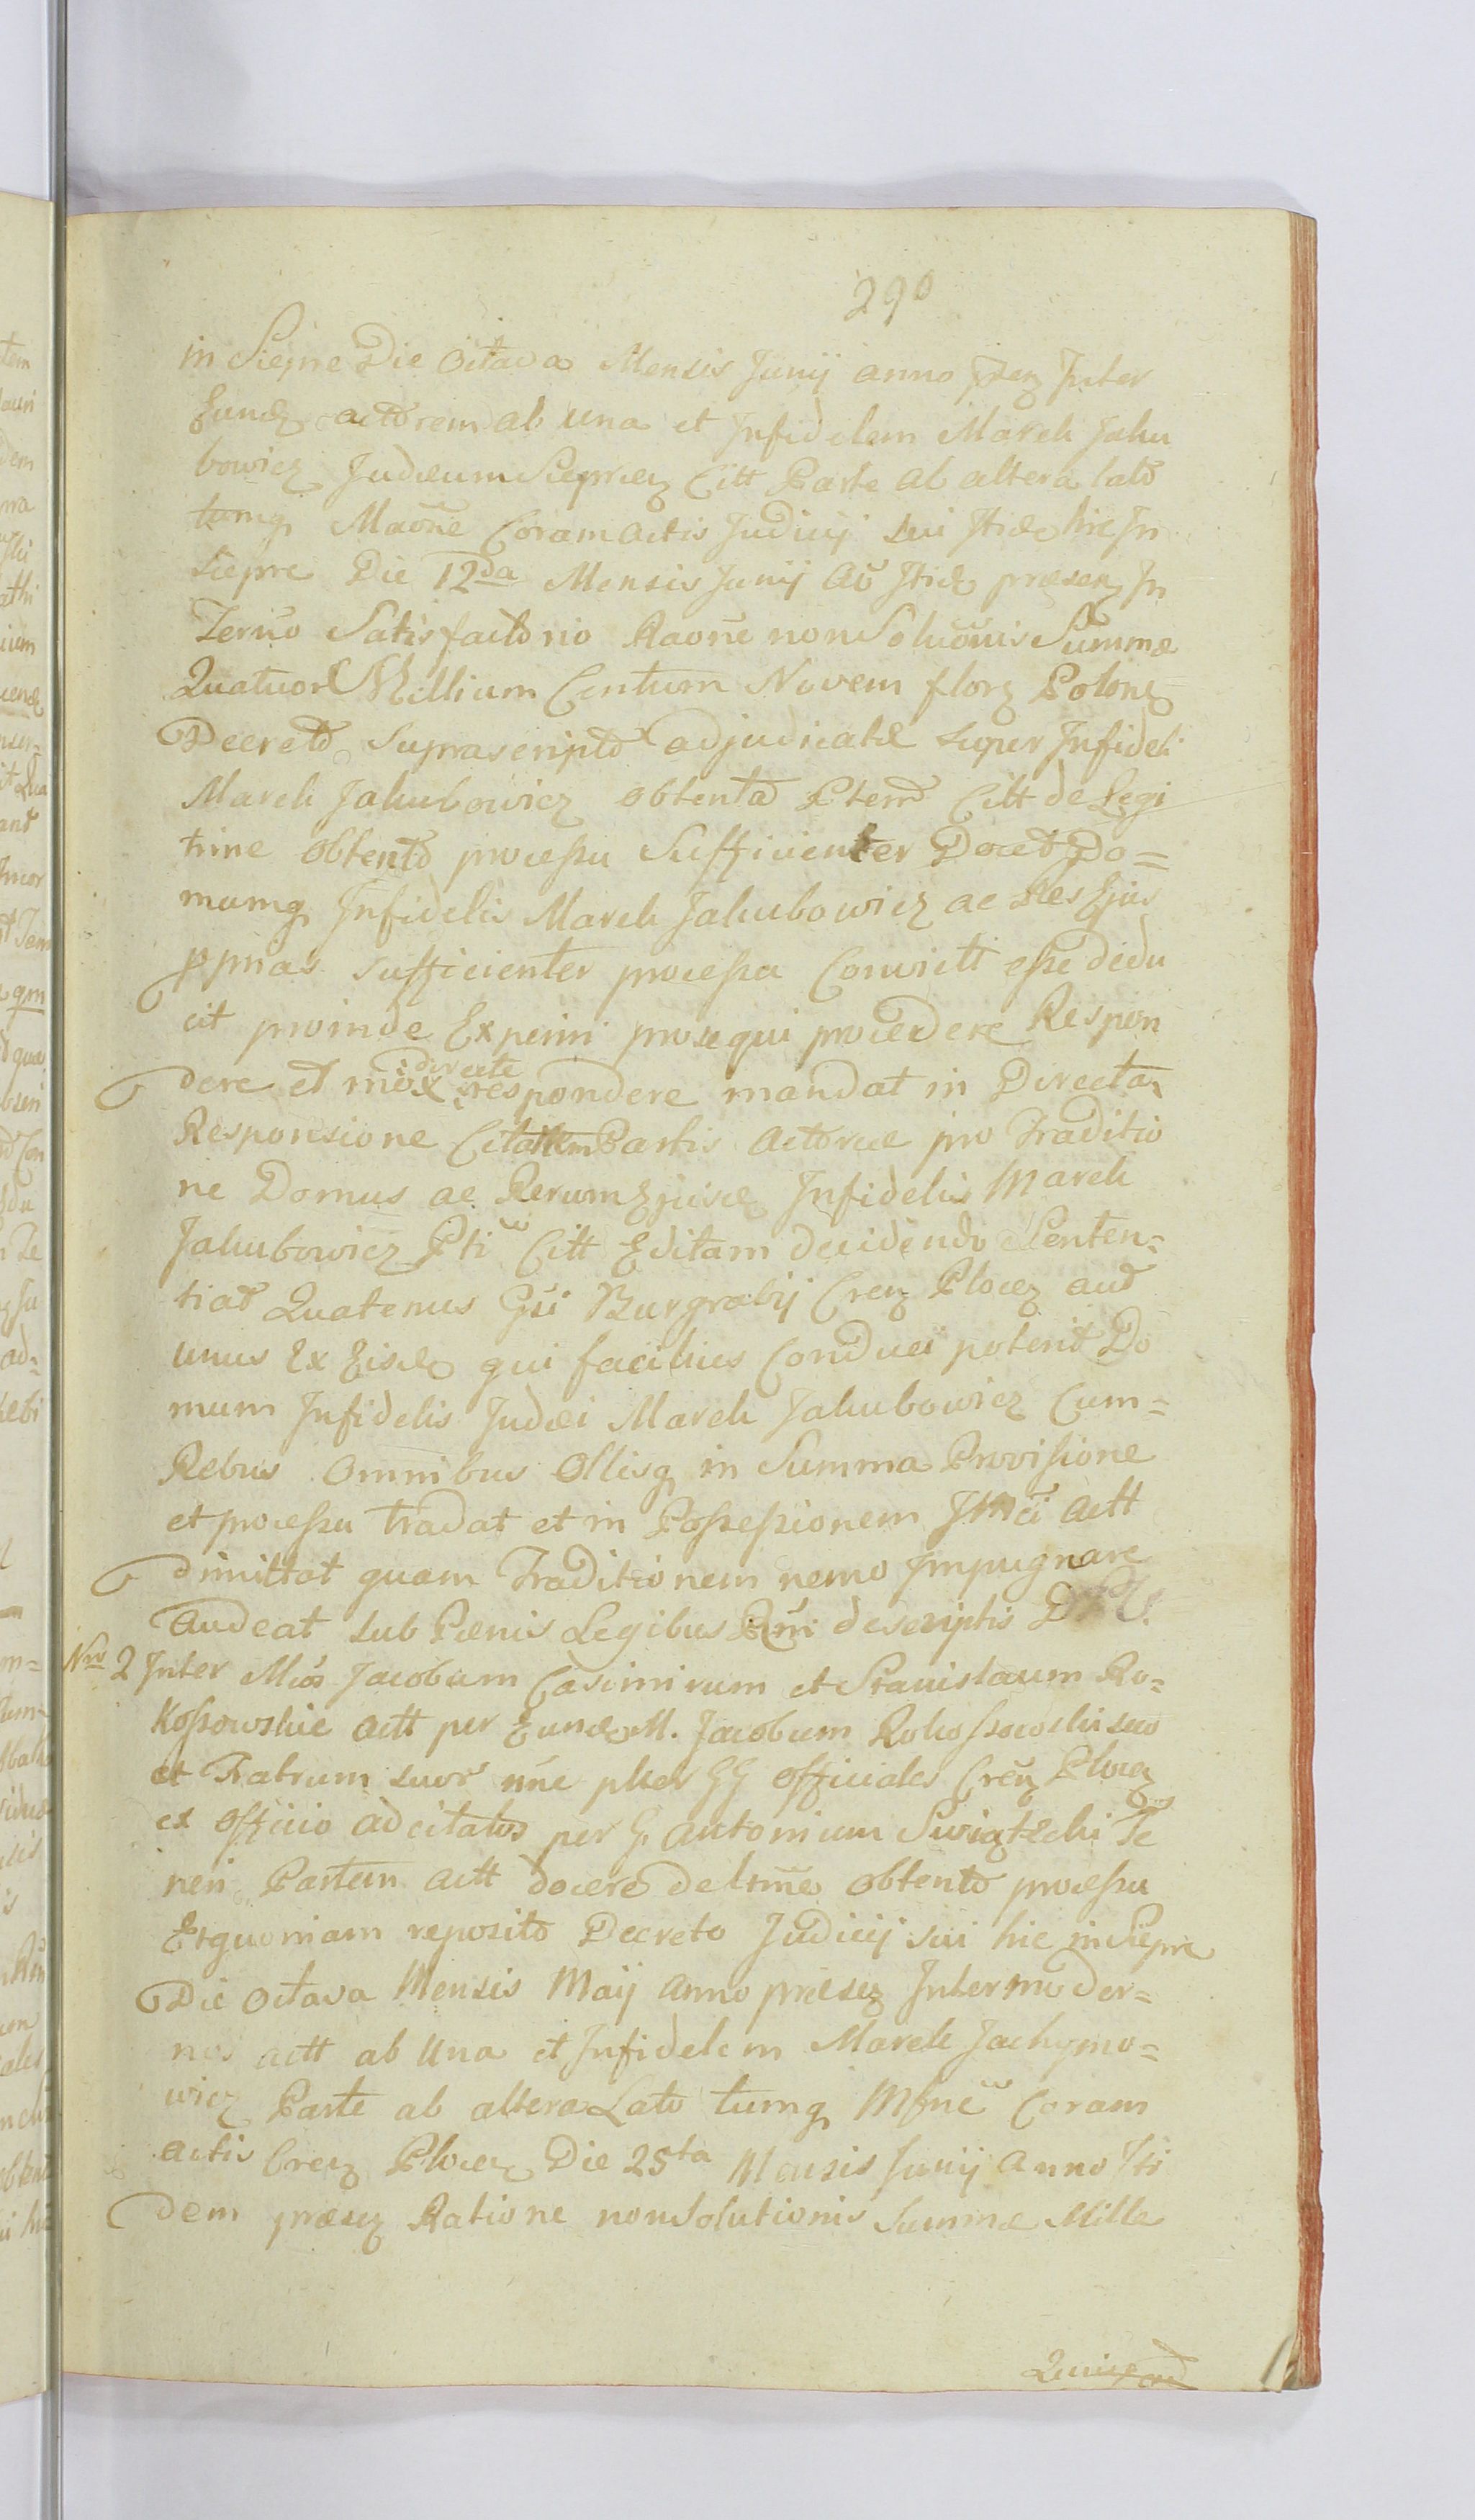 290
in Siepre Die Octava Mensis Junij anno prez Inter
Eund actorem ab una et Infidelem Marek Jaku
bowicz Judæum Sieprcen Citt Parte ab altera lato
tumq Maone Coram actis Judicij sui Itid hic In
Siepre Die 12da Mensis Junij ao Itid præsen In
Termo Satisfactorio Raone non Soluonis Summæ
Quatuor Millium Centum Novem flor Polon
Decreto Suprascripto adjudicatæ super Infideli
Marek Jakubowicz obtento Ptem Citt de Legi
time obtento processu Sufficienter Docet Do=
mumq Infidelis Marek Jakubowicz ac Res Ejus
pprias sufficienter processu Convicti esse dedu
cit proinde Experiri prosequi procedere Respon
dere et mox directe respondere mandat in Directa
Responsione Citatam Partis actoreæ pro Traditio
ne Domus ac Rerum Ejusd Infidelis Marek
Jakubowicz Pti Citt Editam decidendo Senten=
tiat Quatenus Gsi Burgrabij Cren Plocen aut
unus Ex Eisd qui facilius Conduci poterit Do
mum Infidelis Judæi Marek Jakubowicz Cum=
Rebus omnibus Illisq in Summa Provisione
et processu tradat et in Possessionem Actt
dimittat quam Traditionem nemo Impugnare
audeat sub Pænis Legibus Rni descriptis
Nro 2 Inter Mcos Jacobum Casimirum et Stanislaum Ro=
kossowskie actt per Eund M. Jacobum Rokossowski suo
et Fratrum suor nne plter GG officiales Cren Plocen
ex officio adcitatos per G. antonium Swiątecki Te
neri Partem actt docere de ltme obtento processu
Et quoniam reposito Decreto Judicij sui hic in Siepre
Die octava Mensis Maij anno præsen Inter moder=
nos actt ab Una et Infidelem Marek Jachymo=
wicz Parte ab altera Lato tumq Mone Coram
actis Cren Plocen Die 25ta Mensis Junij anno Iti
dem præsen Ratione non Solutionis Summæ Mille